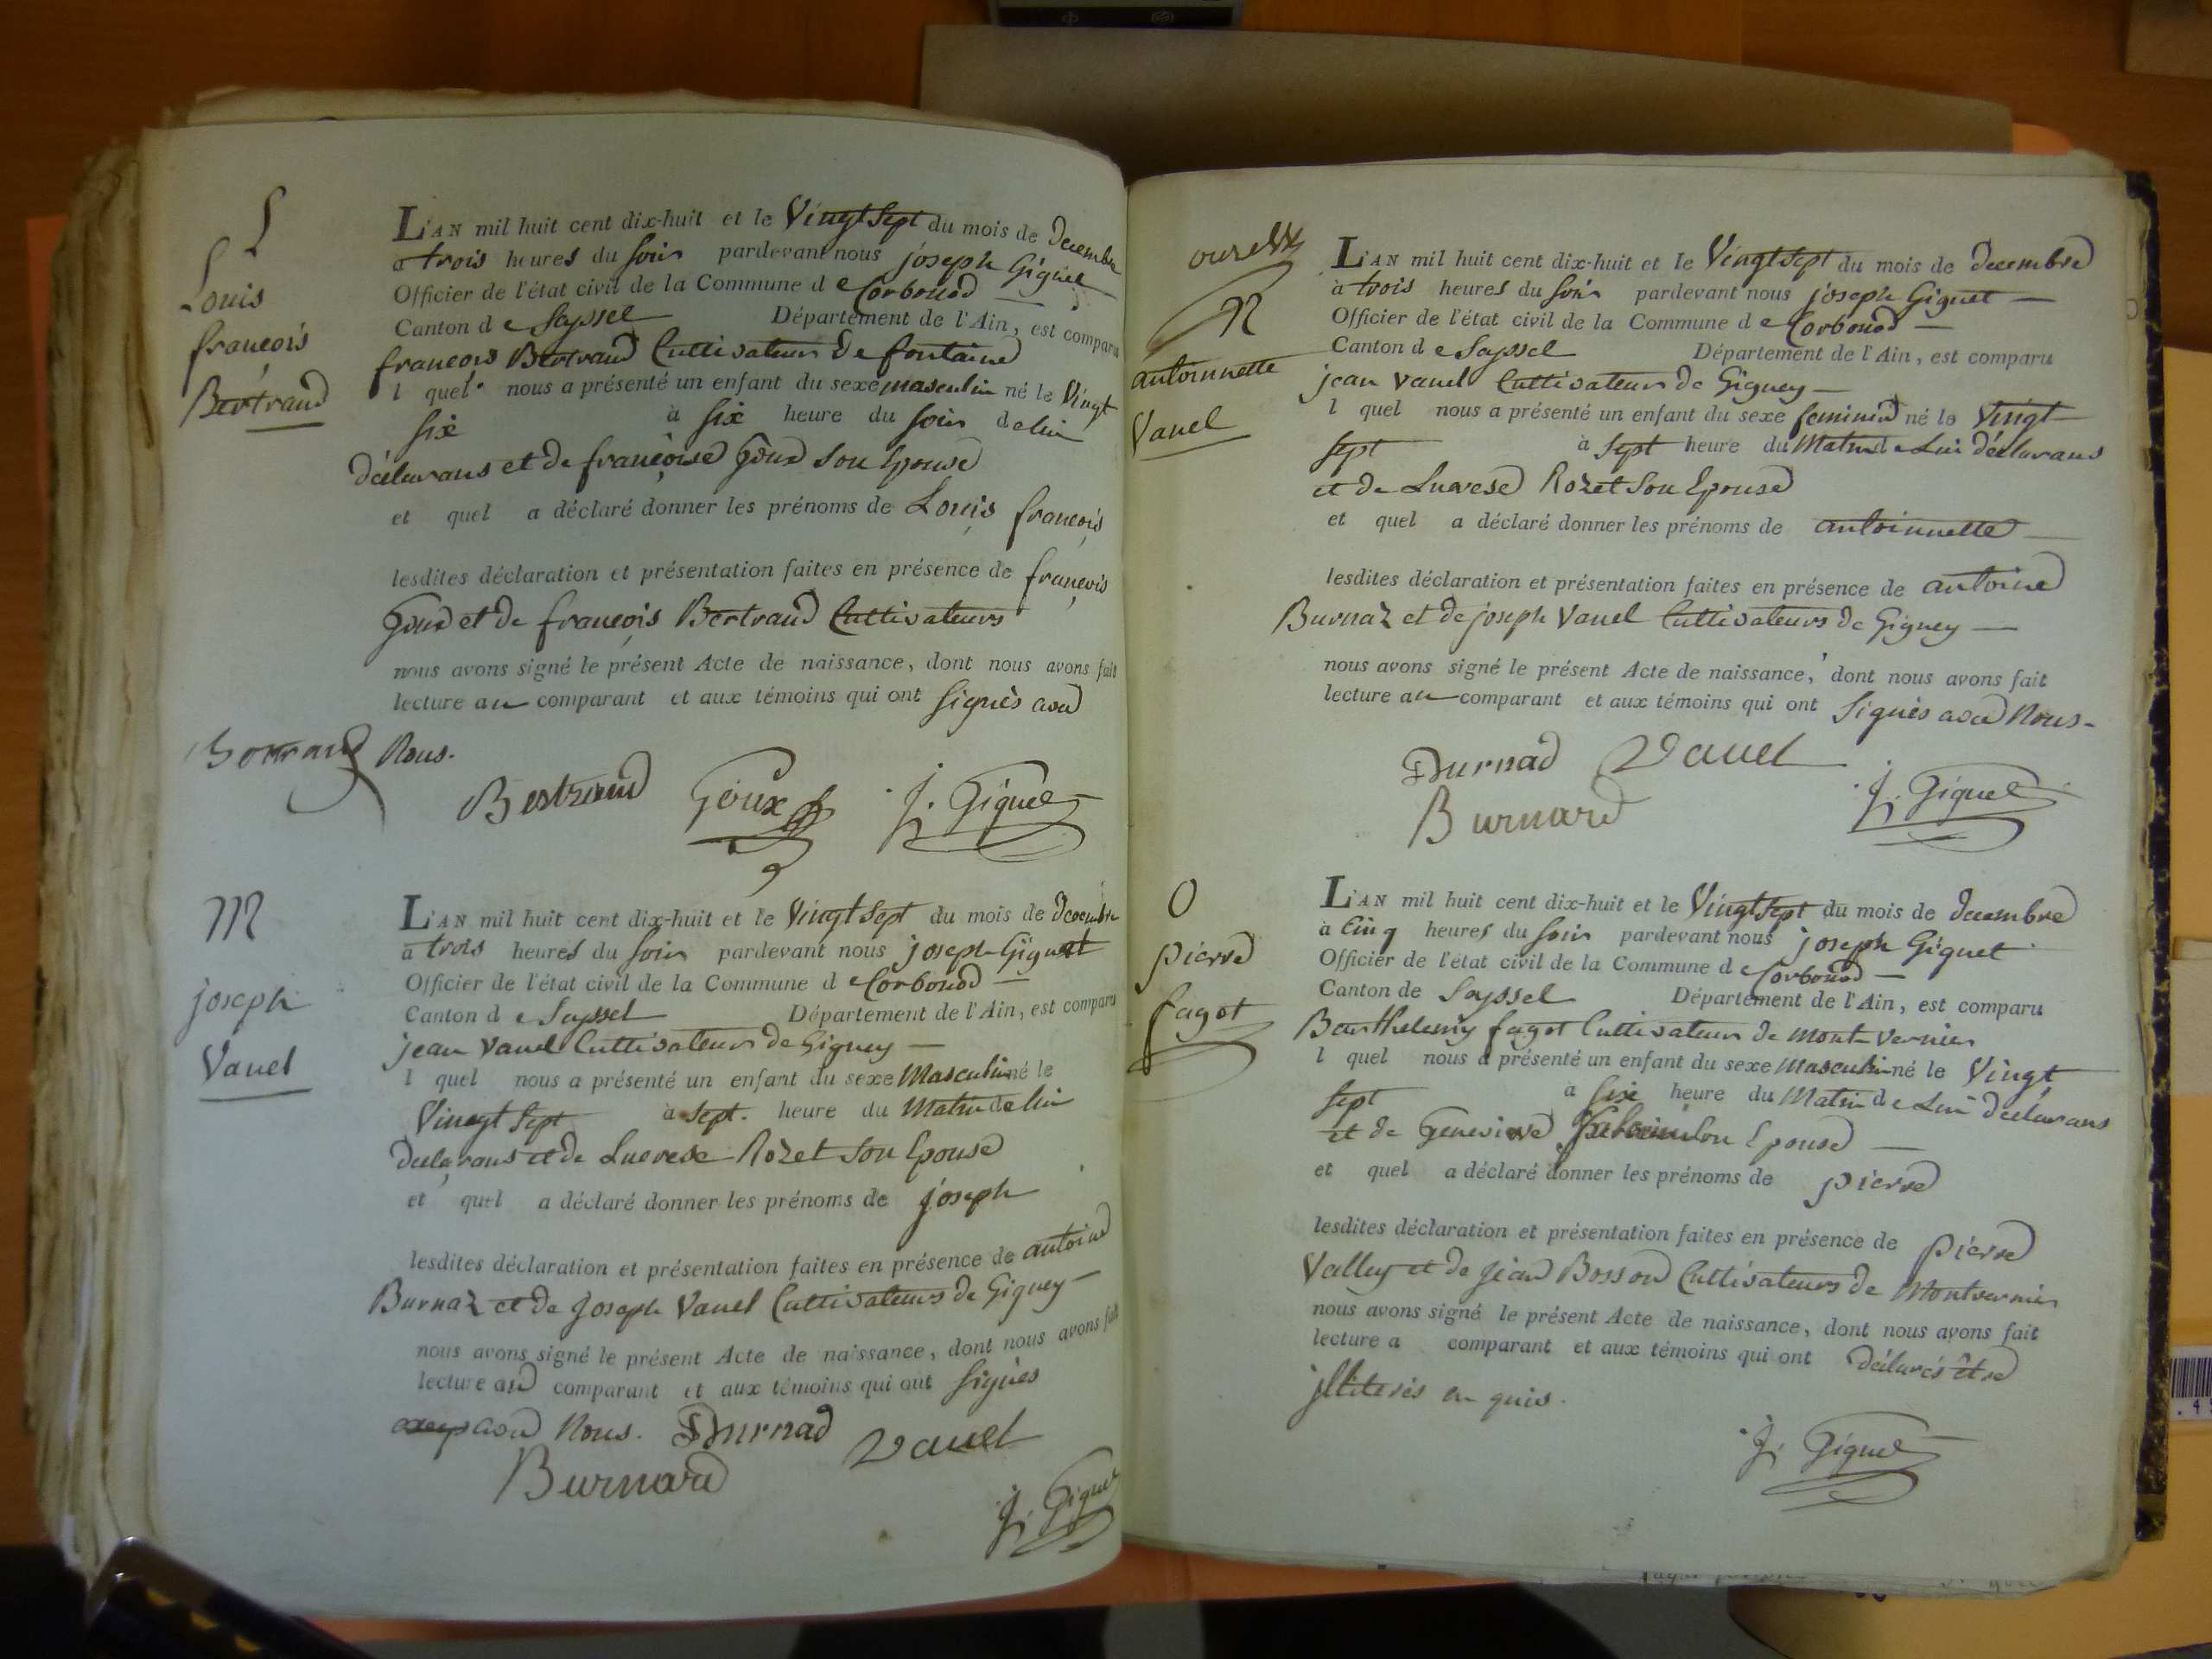 L
Louis
françois
Bertrand
L'AN mil huit cent dix-huit et le Vingt Sept du mois de decembre
a trois heures du soir pardevant nous joseph Giguet
Officier de l'état civil de la Commune de Corbonod
Canton de Seyssel Département de l'Ain, est comparu
françois Bertrand Cultivateur de fontaine
l quel nous a présenté un enfant du sexe masculin né le Vingt
six à six heure du soir de lui
déclarans et de françoise Goux son Epouse
et quel a déclaré donner les prénoms de Louis françois
lesdites déclaration et présentation faites en présence de françois
Goux et de françois Bertrand Cultivateurs
nous avons signé le présent Acte de naissance, dont nous avons fait
lecture au comparant et aux témoins qui ont signés avec
Nous.
Bertrand Goux J. Giguet
M
joseph
Vauel
L'AN mil huit cent dix-huit et le Vingt Sept du mois de decembre
a trois heures du soir pardevant nous joseph Giguet
Officier de l'état civil de la Commune de Corbonod
Canton de Seyssel Département de l'Ain, est comparu
jean Vauel Cultivateur de Gigney
l quel nous a présenté un enfant du sexe Masculin né le
Vingt Sept à sept. heure du Matin de lui
declarans et de Lucrese Rozet son Epouse
et quel a déclaré donner les prénoms de joseph
lesdites déclaration et présentation faites en présence de antoine
Burnaz et de Joseph Vauel Cultivateurs de Gigney
nous avons signé le présent Acte de naissance, dont nous avons fait
lecture au comparant et aux témoins qui ont signés
avec Nous. Burnad Vauel
Burnard
J. Giguet
N
antoinnette
Vauel
L'AN mil huit cent dix-huit et le Vingt Sept du mois de decembre
à trois heures du soir pardevant nous joseph Giguet
Officier de l'état civil de la Commune de Corbonod
Canton de Seyssel Département de l'Ain, est comparu
jean Vauel Cultivateur de Gigney
l quel nous a présenté un enfant du sexe feminin né le Vingt
sept à sept heure du Matin de Lui déclarans
et de Lucrese Rozet son Epouse
et quel a déclaré donner les prénoms de antoinnette
lesdites déclaration et présentation faites en présence de antoine
Burnaz et de joseph Vauel Cultivateurs de Gigney
nous avons signé le présent Acte de naissance, dont nous avons fait
lecture au comparant et aux témoins qui ont signés avec Nous
Burnad Vauel
Burnard J. Giguet
O
pierre
fagot
L'AN mil huit cent dix-huit et le Vingt Sept du mois de decembre
à Cinq heures du soir pardevant nous joseph Giguet
Officier de l'état civil de la Commune de Corbonod
Canton de Seyssel Département de l'Ain, est comparu
Barthelemy fagot Cultivateur de mont vernier
l quel nous a présenté un enfant du sexe masculin né le Vingt
sept à six heure du Matin de Lui déclarans
et de Genevieve son Epouse
et quel a déclaré donner les prénoms de pierre
lesdites déclaration et présentation faites en présence de pierre
Valley et de jean Bosson Cultivateurs de Montvernier
nous avons signé le présent Acte de naissance, dont nous avons fait
lecture a comparant et aux témoins qui ont déclarés être
jlliterés en quis.
J. Giguet